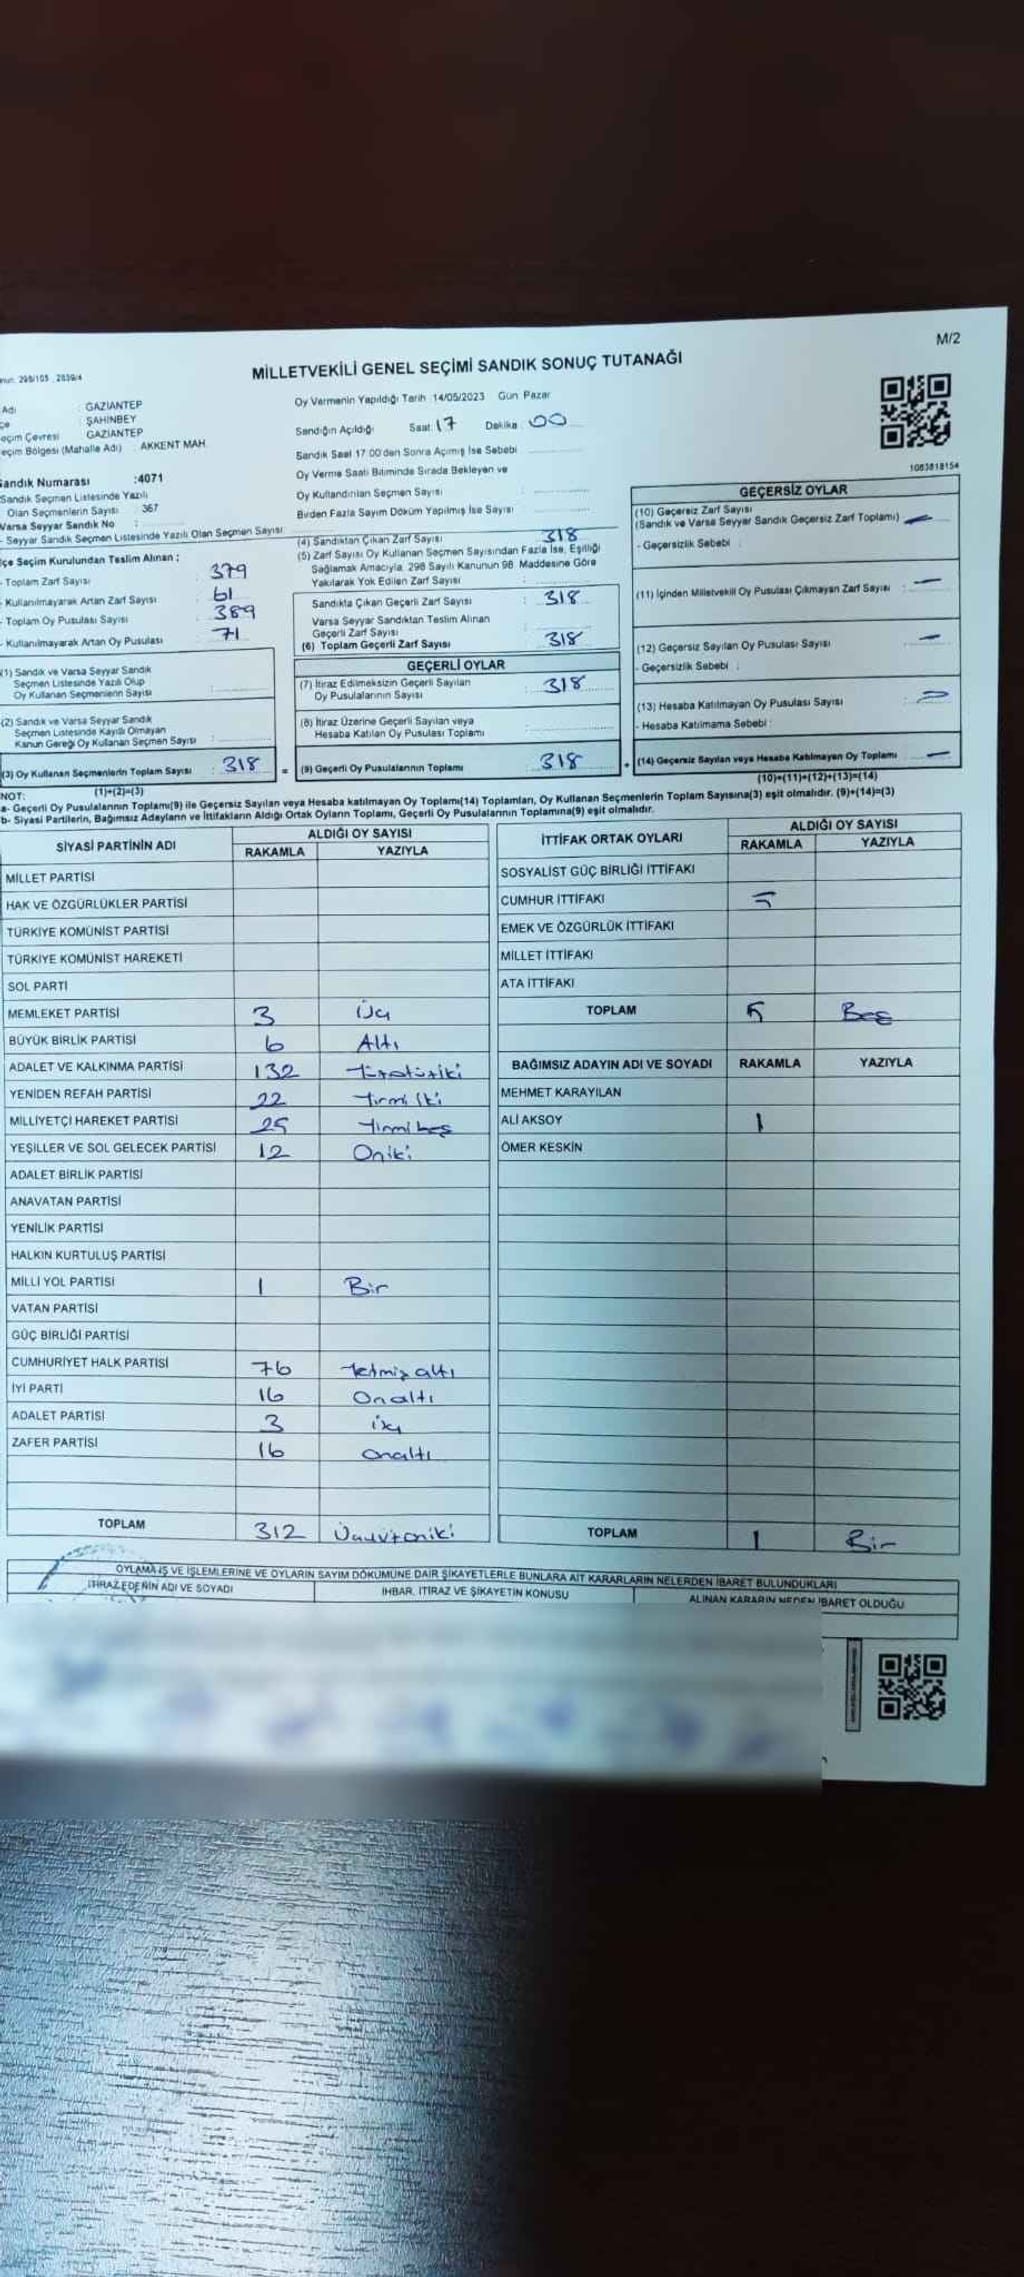 M/2
MİLLETVEKİLİ GENEL SEÇİMİ SANDIK SONUÇ TUTANAĞI
298/103 2839/4
Adı : GAZİANTEP
ŞAHİNBEY
eçim Çevresi GAZİANTEP
eçim Bölgesi (Mahalle Adı) : AKKENT MAH.
Oy Vermenin Yapıldığı Tarih :14/05/2023 Gün Pazar
Sandığın Açıldığı Saat: 17 Dakika : 00
Sandık Saat 17.00'den Sonra Açılmış İse Sebebi
Oy Verme Saati Bitiminde Sırada Bekleyen ve
Oy Kullandırılan Seçmen Sayısı
Birden Fazla Sayım Döküm Yapılmış İse Sayısı
1083818154
andık Numarası :4071
Sandık Seçmen Listesinde Yazılı
Olan Seçmenlerin Sayısı : 367
Varsa Seyyar Sandık No :
- Seyyar Sandık Seçmen Listesinde Yazılı Olan Seçmen Sayısı
çe Seçim Kurulundan Teslim Alınan ;
- Toplam Zarf Sayısı 379
- Kullanılmayarak Artan Zarf Sayısı 61
- Toplam Oy Pusulası Sayısı 389
- Kullanılmayarak Artan Oy Pusulası 71
(1) Sandık ve Varsa Seyyar Sandık
Seçmen Listesinde Yazılı Olup
Oy Kullanan Seçmenlerin Sayısı :
(2) Sandık ve Varsa Seyyar Sandık
Seçmen Listesinde Kayıtlı Olmayan
Kanun Gereği Oy Kullanan Seçmen Sayısı :
(3) Oy Kullanan Seçmenlerin Toplam Sayısı : 318
(1)+(2)=(3)
(4) Sandıktan Çıkan Zarf Sayısı 318
(5) Zarf Sayısı Oy Kullanan Seçmen Sayısından Fazla İse, Eşitliği
Sağlamak Amacıyla, 298 Sayılı Kanunun 98. Maddesine Göre
Yakılarak Yok Edilen Zarf Sayısı :
Sandıkta Çıkan Geçerli Zarf Sayısı : 318
Varsa Seyyar Sandıktan Teslim Alınan
Geçerli Zarf Sayısı
(6) Toplam Geçerli Zarf Sayısı 318
GEÇERLİ OYLAR
(7) İtiraz Edilmeksizin Geçerli Sayılan
Oy Pusulalarının Sayısı : 318
(8) İtiraz Üzerine Geçerli Sayılan veya
Hesaba Katılan Oy Pusulası Toplamı :
= (9) Geçerli Oy Pusulalarının Toplamı 318 +
GEÇERSİZ OYLAR
(10) Geçersiz Zarf Sayısı
(Sandık ve Varsa Seyyar Sandık Geçersiz Zarf Toplamı) : —
- Geçersizlik Sebebi :
(11) İçinden Milletvekili Oy Pusulası Çıkmayan Zarf Sayısı : —
(12) Geçersiz Sayılan Oy Pusulası Sayısı : —
- Geçersizlik Sebebi :
(13) Hesaba Katılmayan Oy Pusulası Sayısı :
- Hesaba Katılmama Sebebi :
(14) Geçersiz Sayılan veya Hesaba Katılmayan Oy Toplamı : —
(10)+(11)+(12)+(13)=(14)
NOT:
a- Geçerli Oy Pusulalarının Toplamı(9) ile Geçersiz Sayılan veya Hesaba katılmayan Oy Toplamı(14) Toplamları, Oy Kullanan Seçmenlerin Toplam Sayısına(3) eşit olmalıdır. (9)+(14)=(3)
b- Siyasi Partilerin, Bağımsız Adayların ve İttifakların Aldığı Ortak Oyların Toplamı, Geçerli Oy Pusulalarının Toplamına(9) eşit olmalıdır.
SİYASİ PARTİNİN ADI ALDIĞI OY SAYISI
RAKAMLA YAZIYLA
MİLLET PARTİSİ
HAK VE ÖZGÜRLÜKLER PARTİSİ
TÜRKİYE KOMÜNİST PARTİSİ
TÜRKİYE KOMÜNİST HAREKETİ
SOL PARTİ
MEMLEKET PARTİSİ 3 Üç
BÜYÜK BİRLİK PARTİSİ 6 Altı
ADALET VE KALKINMA PARTİSİ 132
YENİDEN REFAH PARTİSİ 22 Yirmi iki
MİLLİYETÇİ HAREKET PARTİSİ 25 Yirmibeş
YEŞİLLER VE SOL GELECEK PARTİSİ 12 Oniki
ADALET BİRLİK PARTİSİ
ANAVATAN PARTİSİ
YENİLİK PARTİSİ
HALKIN KURTULUŞ PARTİSİ
MİLLİ YOL PARTİSİ 1 Bir
VATAN PARTİSİ
GÜÇ BİRLİĞİ PARTİSİ
CUMHURİYET HALK PARTİSİ 76 Yetmiş altı
İYİ PARTİ 16 Onaltı
ADALET PARTİSİ 3
ZAFER PARTİSİ 16 onaltı
TOPLAM 312 Üçyüzoniki
İTTİFAK ORTAK OYLARI ALDIĞI OY SAYISI
RAKAMLA YAZIYLA
SOSYALİST GÜÇ BİRLİĞİ İTTİFAKI
CUMHUR İTTİFAKI 5
EMEK VE ÖZGÜRLÜK İTTİFAKI
MİLLET İTTİFAKI
ATA İTTİFAKI
TOPLAM 5 Beş
BAĞIMSIZ ADAYIN ADI VE SOYADI RAKAMLA YAZIYLA
MEHMET KARAYILAN
ALİ AKSOY 1
ÖMER KESKİN
TOPLAM 1 Bir
OYLAMA İŞ VE İŞLEMLERİNE VE OYLARIN SAYIM DÖKÜMÜNE DAİR ŞİKAYETLERLE BUNLARA AİT KARARLARIN NELERDEN İBARET BULUNDUKLARI
İTİRAZ EDENİN ADI VE SOYADI İHBAR, İTİRAZ VE ŞİKAYETİN KONUSU ALINAN KARARIN NEDEN İBARET OLDUĞU